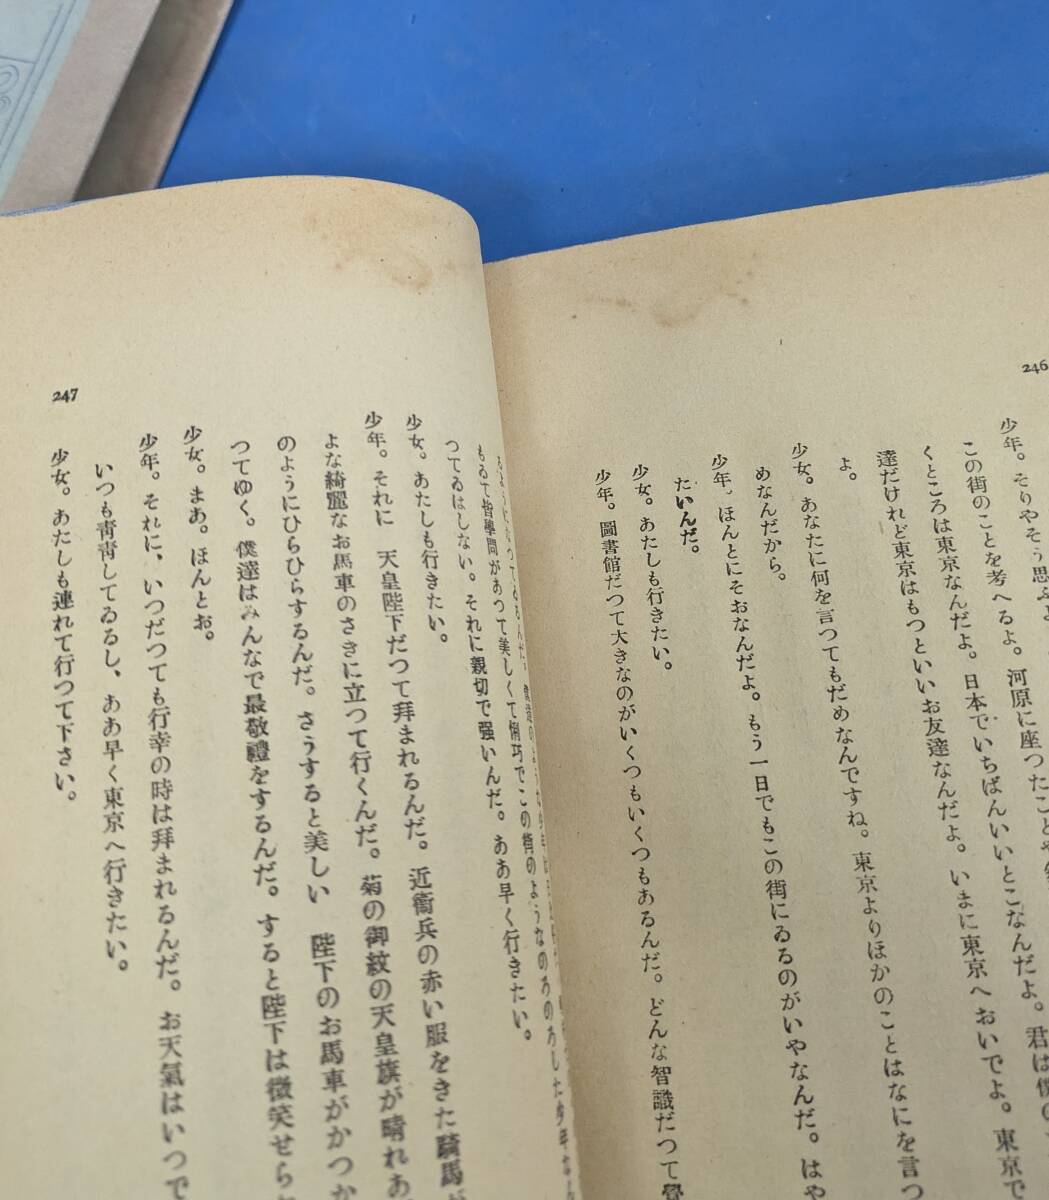 246
少年。そりやそう思ふよ
この街のことを考へるよ。河原に座つたことや
くところは東京なんだよ。日本でいちばんいいとこなんだよ。君は僕の
達だけれど東京はもつといいお友達なんだよ。いまに東京へおいでよ。東京で
よ。
少女。あなたに何を言つてもだめなんですね。東京よりほかのことはなにを言つ
めなんだから。
少年。ほんとにそおなんだよ。もう一日でもこの街にゐるのがいやなんだ。はや
たいんだ。
少女。あたしも行きたい。
少年。圖書館だつて大きなのがいくつもいくつもあるんだ。どんな智識だつて
247
もゐて皆學問があつて美しくて悧巧でこの街のようなのろのろした少年
つてゐはしない。それに親切で强いんだ。ああ早く行きたい。
少女。あたしも行きたい。
少年。それに 天皇陛下だつて拜まれるんだ。近衞兵の赤い服をきた騎馬が
よな綺麗なお馬車のさきに立つて行くんだ。菊の御紋の天皇旗が晴れあ
のようにひらひらするんだ。さうすると美しい 陛下のお馬車がかつか
つてゆく。僕達はみんなで最敬禮をするんだ。すると陛下は微笑せら
少女。まあ。ほんとお。
少年。それに、いつだつても行幸の時は拜まれるんだ。お天氣はいつで
いつも靑靑してゐるし、ああ早く東京へ行きたい。
少女。あたしも連れて行つて下さい。